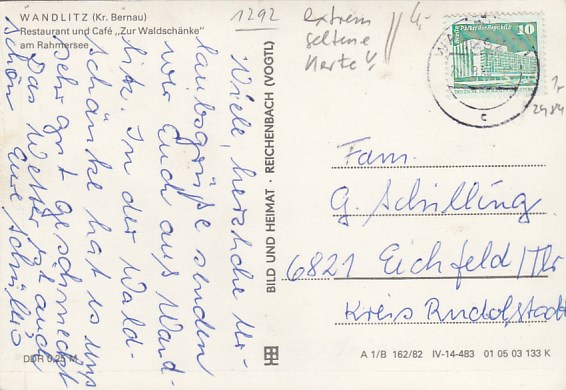 WANDLITZ (Kr. Bernau)
Restaurant und Café „Zur Waldschänke"
am Rahmersee
1292
extrem
seltene
Karte
4,-
10
Palast der Republik
c
2484
Viele, herzliche Ur-
laubsgrüße senden
wir Euch aus Wand-
litz. In der Wald-
schänke hat es uns
sehr gut geschmeckt
Das Wetter ist auch
schön Eure Schillis
BILD UND HEIMAT · REICHENBACH (VOGTL)
Fam.
G. Schilling
6821 Eichfeld/Thr
Kreis Rudolstadt
DDR 0,25 M
A 1/B 162/82 IV-14-483 01 05 03 133 K